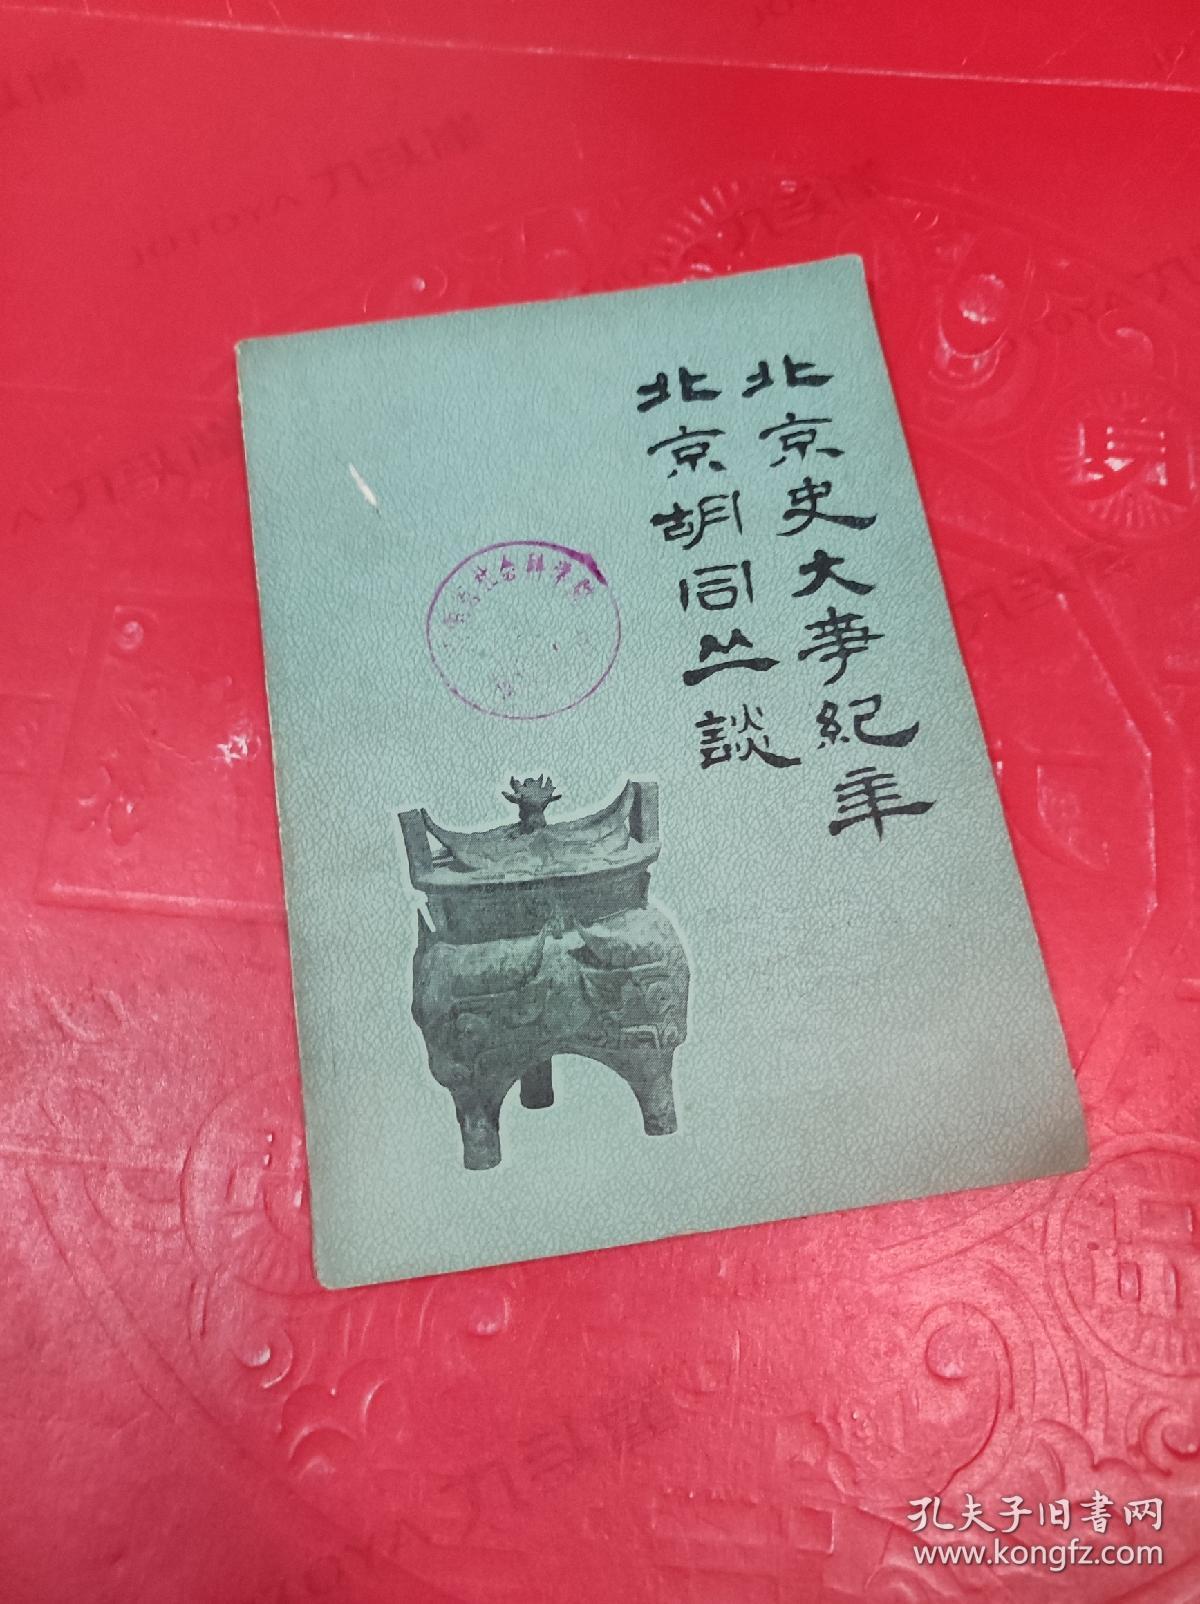 北京史大事纪年
北京胡同丛談
社会科学院
孔夫子旧书网
www.kongfz.com